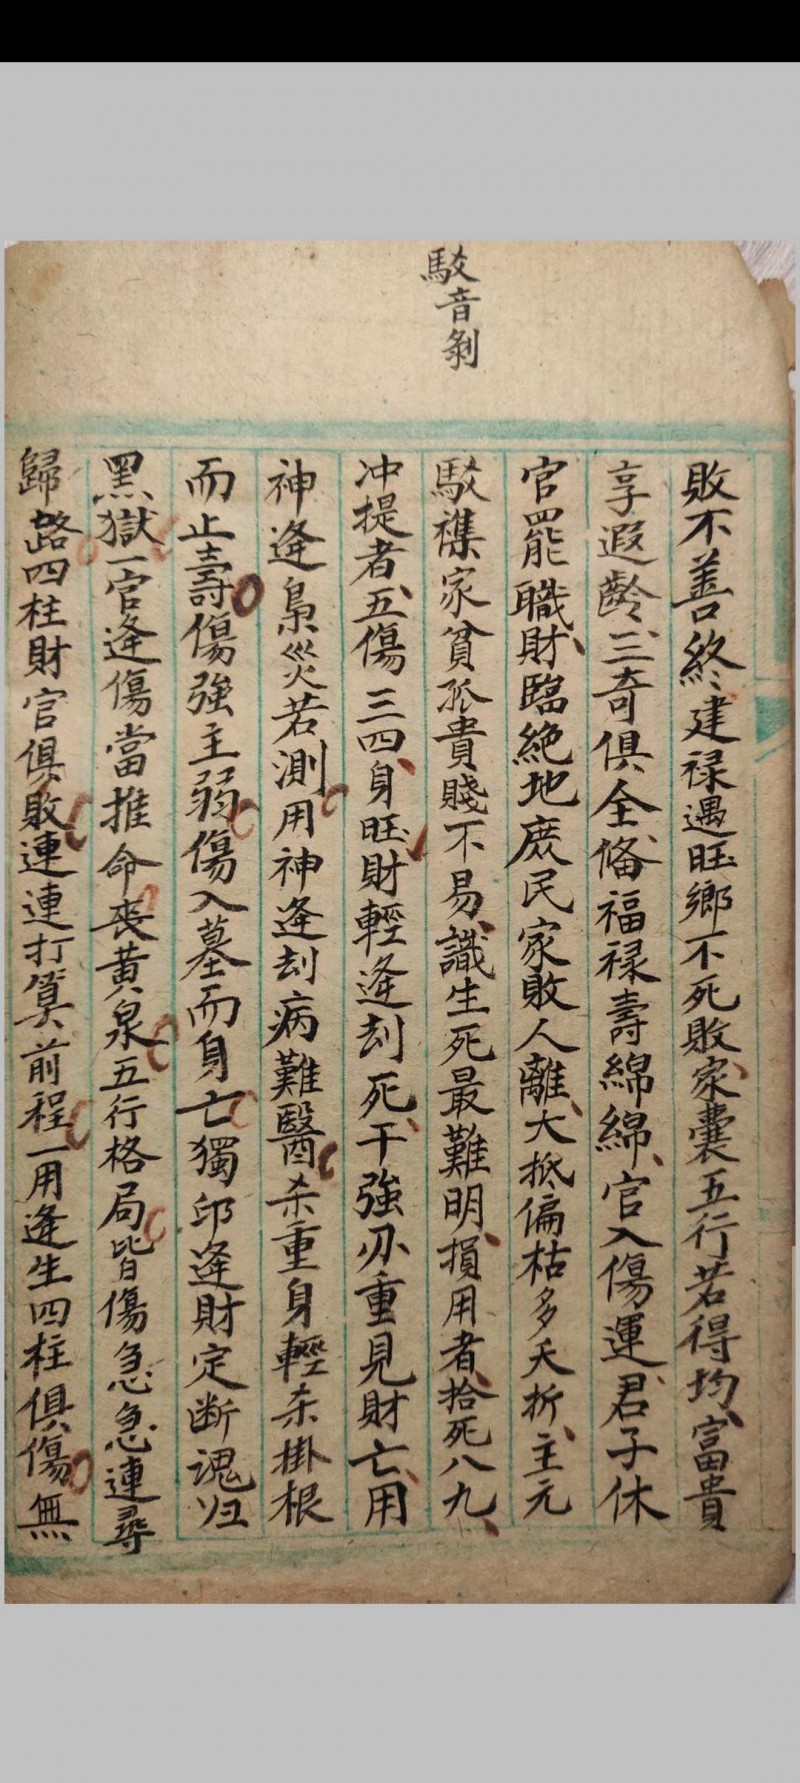 駁音剝
敗不善終建禄遇旺鄉不死敗家囊五行若得均富貴
享遐齡三奇俱全俻福禄壽綿綿官入傷運君子休
官罷職財臨絶地庶民家敗人離大抵偏枯多夭折主元
駁襍家貧孤貴賤不易識生死最難明損用者拾死八九
冲提者五傷三四身旺財輕逄刦死干強刃重見財亡用
神逄梟災若測用神逄刦病難醫杀重身輕杀掛根
而止壽傷強主弱傷入墓而身亡獨印逄財定断魂归
黑獄一官逄傷當推命丧黄泉五行格局皆傷急急連尋
歸路四柱財官俱敗連連打算前程一用逄生四柱俱傷無